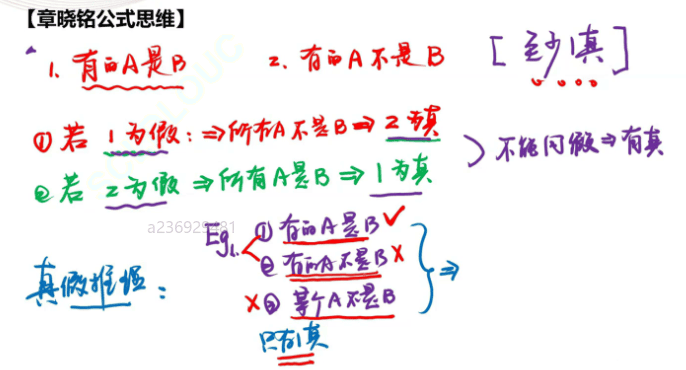 【章晓铭公式思维】
1. 有的A是B 2. 有的A不是B [至少1真]
① 若 1为假：⇒所有A不是B⇒ 2为真
② 若 2为假 ⇒所有A是B ⇒ 1为真
} 不能同假⇒有真
a236929481
Eg1. ① 有的A是B ✓
② 有的A不是B ×
真假推理： × ③ 某个A不是B } ⇒
只有1真